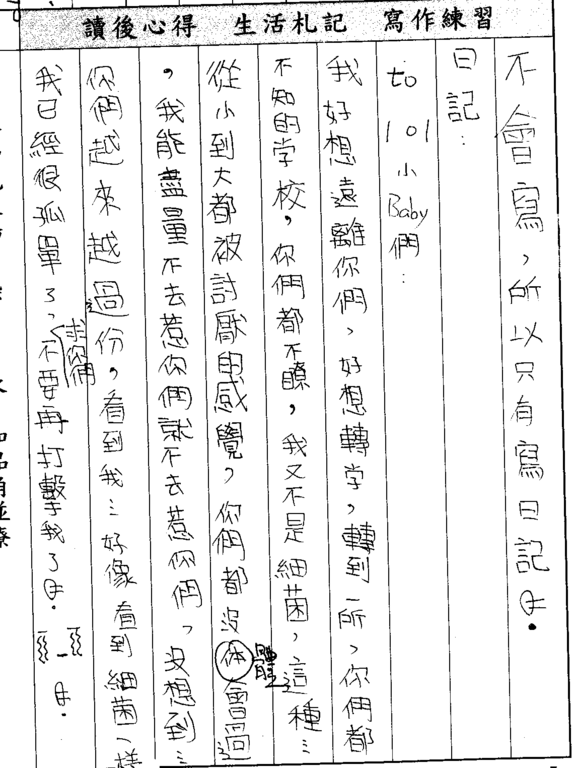 讀後心得 生活札記 寫作練習
不會寫，所以只有寫日記
日記：
to 101小Baby們：
我好想遠離你們，好想轉学，轉到一所，你們都
不知的学校，你們都不瞭，我又不是細菌，這種…
從小到大都被討厭的感覺，你們都沒体會過
體
，我能盡量不去惹你們就不去惹你們，沒想到…
你們越來越過份，看到我…好像看到細菌一樣
我已經很孤單了，不要再打擊我了
求你們